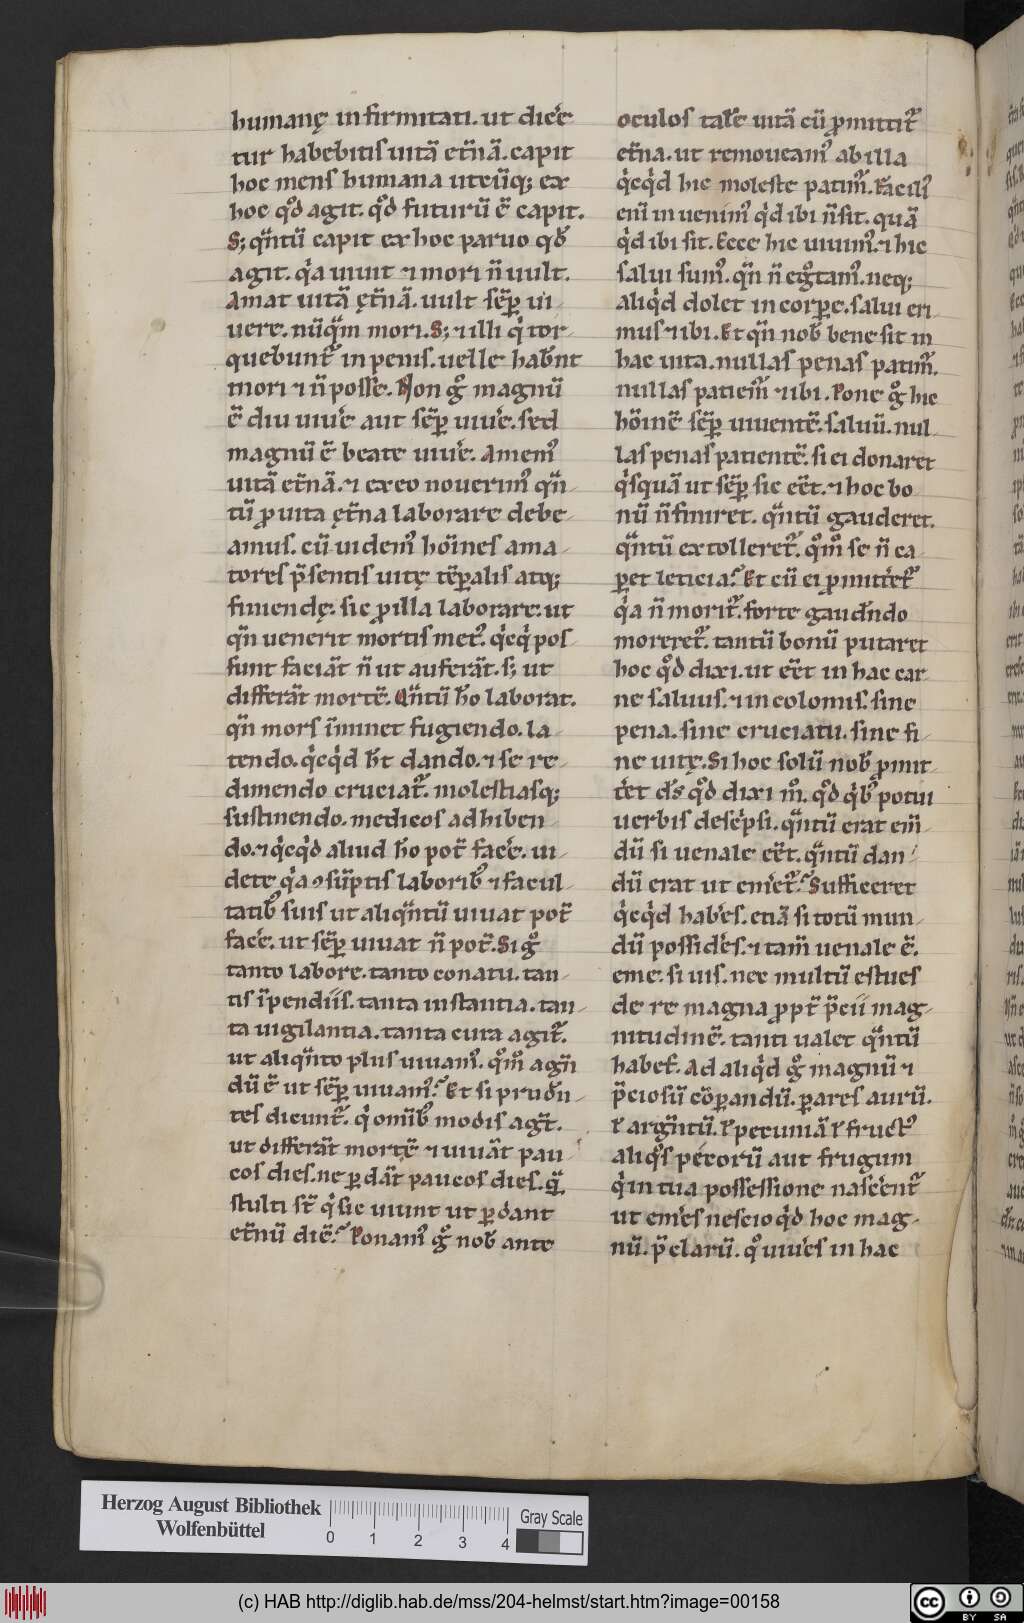 humanę infirmitati. ut dicé
tur habebitis uitā et̄nā. capit
hoc mens humana utcūq; ex
hoc qd̓ agit. qd̓ futurū ē capit.
S; qntū capit ex hoc paruo qd̓
agit. qa uiuit ⁊ mori n̄ uult.
Amat uitā ęt̄nā. uult sēp ui
uere. nūqā mori. S; ⁊ illi q̇ tor
quebunt᷑ in penis. uelle hab̄nt
mori ⁊ n̄ posse. Non gͦ magnū
ē diu uiuḗ aut sēp uiuḗ. sed
magnū ē beate uiuḗ. Amemꝰ
uitā et̄nā. ⁊ ex eo nouerimꝰ qn̄
tū ꝓ uita ęt̄na laborare debe
amus. cū uidemꝰ hōines ama
tores p̄sentis uitę tēꝑalis atq;
finiendę. sic ꝓ illa laborare: ut
qn̄ uenerit mortis metꝰ. q̇cq̇ pos
sunt faciāt n̄ ut auferāt. s; ut
differāt mortē. Qn̄tū h̄o laborat.
qn̄ mors īminet fugiendo. la
tendo. q̇cq̇d h̄t dando. ⁊ se re
dimendo cruciat᷑. molestiasq;
sustinendo. medicos adhiben
do. ⁊ q̇cq̇d aliud h̄o pot̄ facḗ. ui
dete q̇a ꝯsūptis laboribꝰ ⁊ facul
tatibꝰ suis ut aliqn̄tū uiuat pot̄
facḗ. ut sēp uiuat n̄ pot̄. Si gͦ
tanto labore. tanto conatu. tan
tis īpendiis. tanta instantia. tan
ta uigilantia. tanta cura agit᷑.
ut aliqn̄to plus uiuamꝰ. qͦmͦ agn̄
dū ē ut sēp uiuamꝰ? Et si prud̄n
tes dicunt᷑. q̇ om̄ibꝰ modis agt̄.
ut differāt mortē ⁊ uiuāt pau
cos dies. ne ꝑdāt paucos dies. q̄
stulti st̄ q̇ sic uiunt ut ꝑdant
et̄nū diē? Ponamꝰ gͦ nob̄ ante
oculos talē uitā cū ꝓmittit᷑
et̄na. ut remoueamꝰ ab illa
q̇cq̇d hic moleste patim᷑. Facilꝰ
eni in uenimꝰ q̇d ibi n̄ sit. quā
q̇d ibi sit. Ecce hic uiuimꝰ. ⁊ hic
salui sumꝰ. qn̄ n̄ egͦtamꝰ. neq;
aliq̇d dolet in corꝑe. salui eri
mus ⁊ ibi. Et qn̄ nob̄ bene sit in
hac uita. nullas penas patim᷑.
nullas patiem᷑ ⁊ ibi. Pone gͦ hic
hōinē sēp uiuentē. saluū. nul
las penas patientē. si ei donaret
q̇squā ut sēp sic eēt. ⁊ hoc bo
nū n̄ finiret. qn̄tū gauderet.
qn̄tū extolleret᷑. qͦmͦ se n̄ ca
ꝑet leticia? Et cū ei ꝓmitteret᷑
q̇a n̄ morit᷑. forte gaud̄ndo
moreret᷑. tantū bonū putaret
hoc qd̓ dixi. ut eēt in hac car
ne saluus. ⁊ incolomis. sine
pena. sine cruciatu. sine fi
ne uitę. Si hoc solū nob̄ ꝓmit
tét dꝰs qd̓ dixi mͦ. qd̓ q̇bꝰ potui
uerbis descp̄si. qn̄tū erat em̄
dū si uenale eēt. qn̄tū dan
dū erat ut emet᷑? Sufficeret
q̇cq̇d habēs. etiā si totū mun
dū possidēs. ⁊ tam̄ uenale ē.
eme. si uis. nec multū estues
de re magna ꝓpt̄ p̄cii mag
nitudinē. tanti ualet qn̄tū
habet. ad aliq̇d gͦ magnū ⁊
p̄ciosū cōꝑandū. ꝑares aurū.
ł argn̄tū. ł pecuniā ł fructꝰ
aliq̇s pecorū aut frugum
q̇ in tua possessione nascēnt᷑
ut emēs nescio q̇d hoc mag
nū. p̄clarū. qͦ uiuēs in hac
Herzog August Bibliothek
Wolfenbüttel
0 1 2 3 4
Gray Scale
(c) HAB http://diglib.hab.de/mss/204-helmst/start.htm?image=00158
cc BY SA